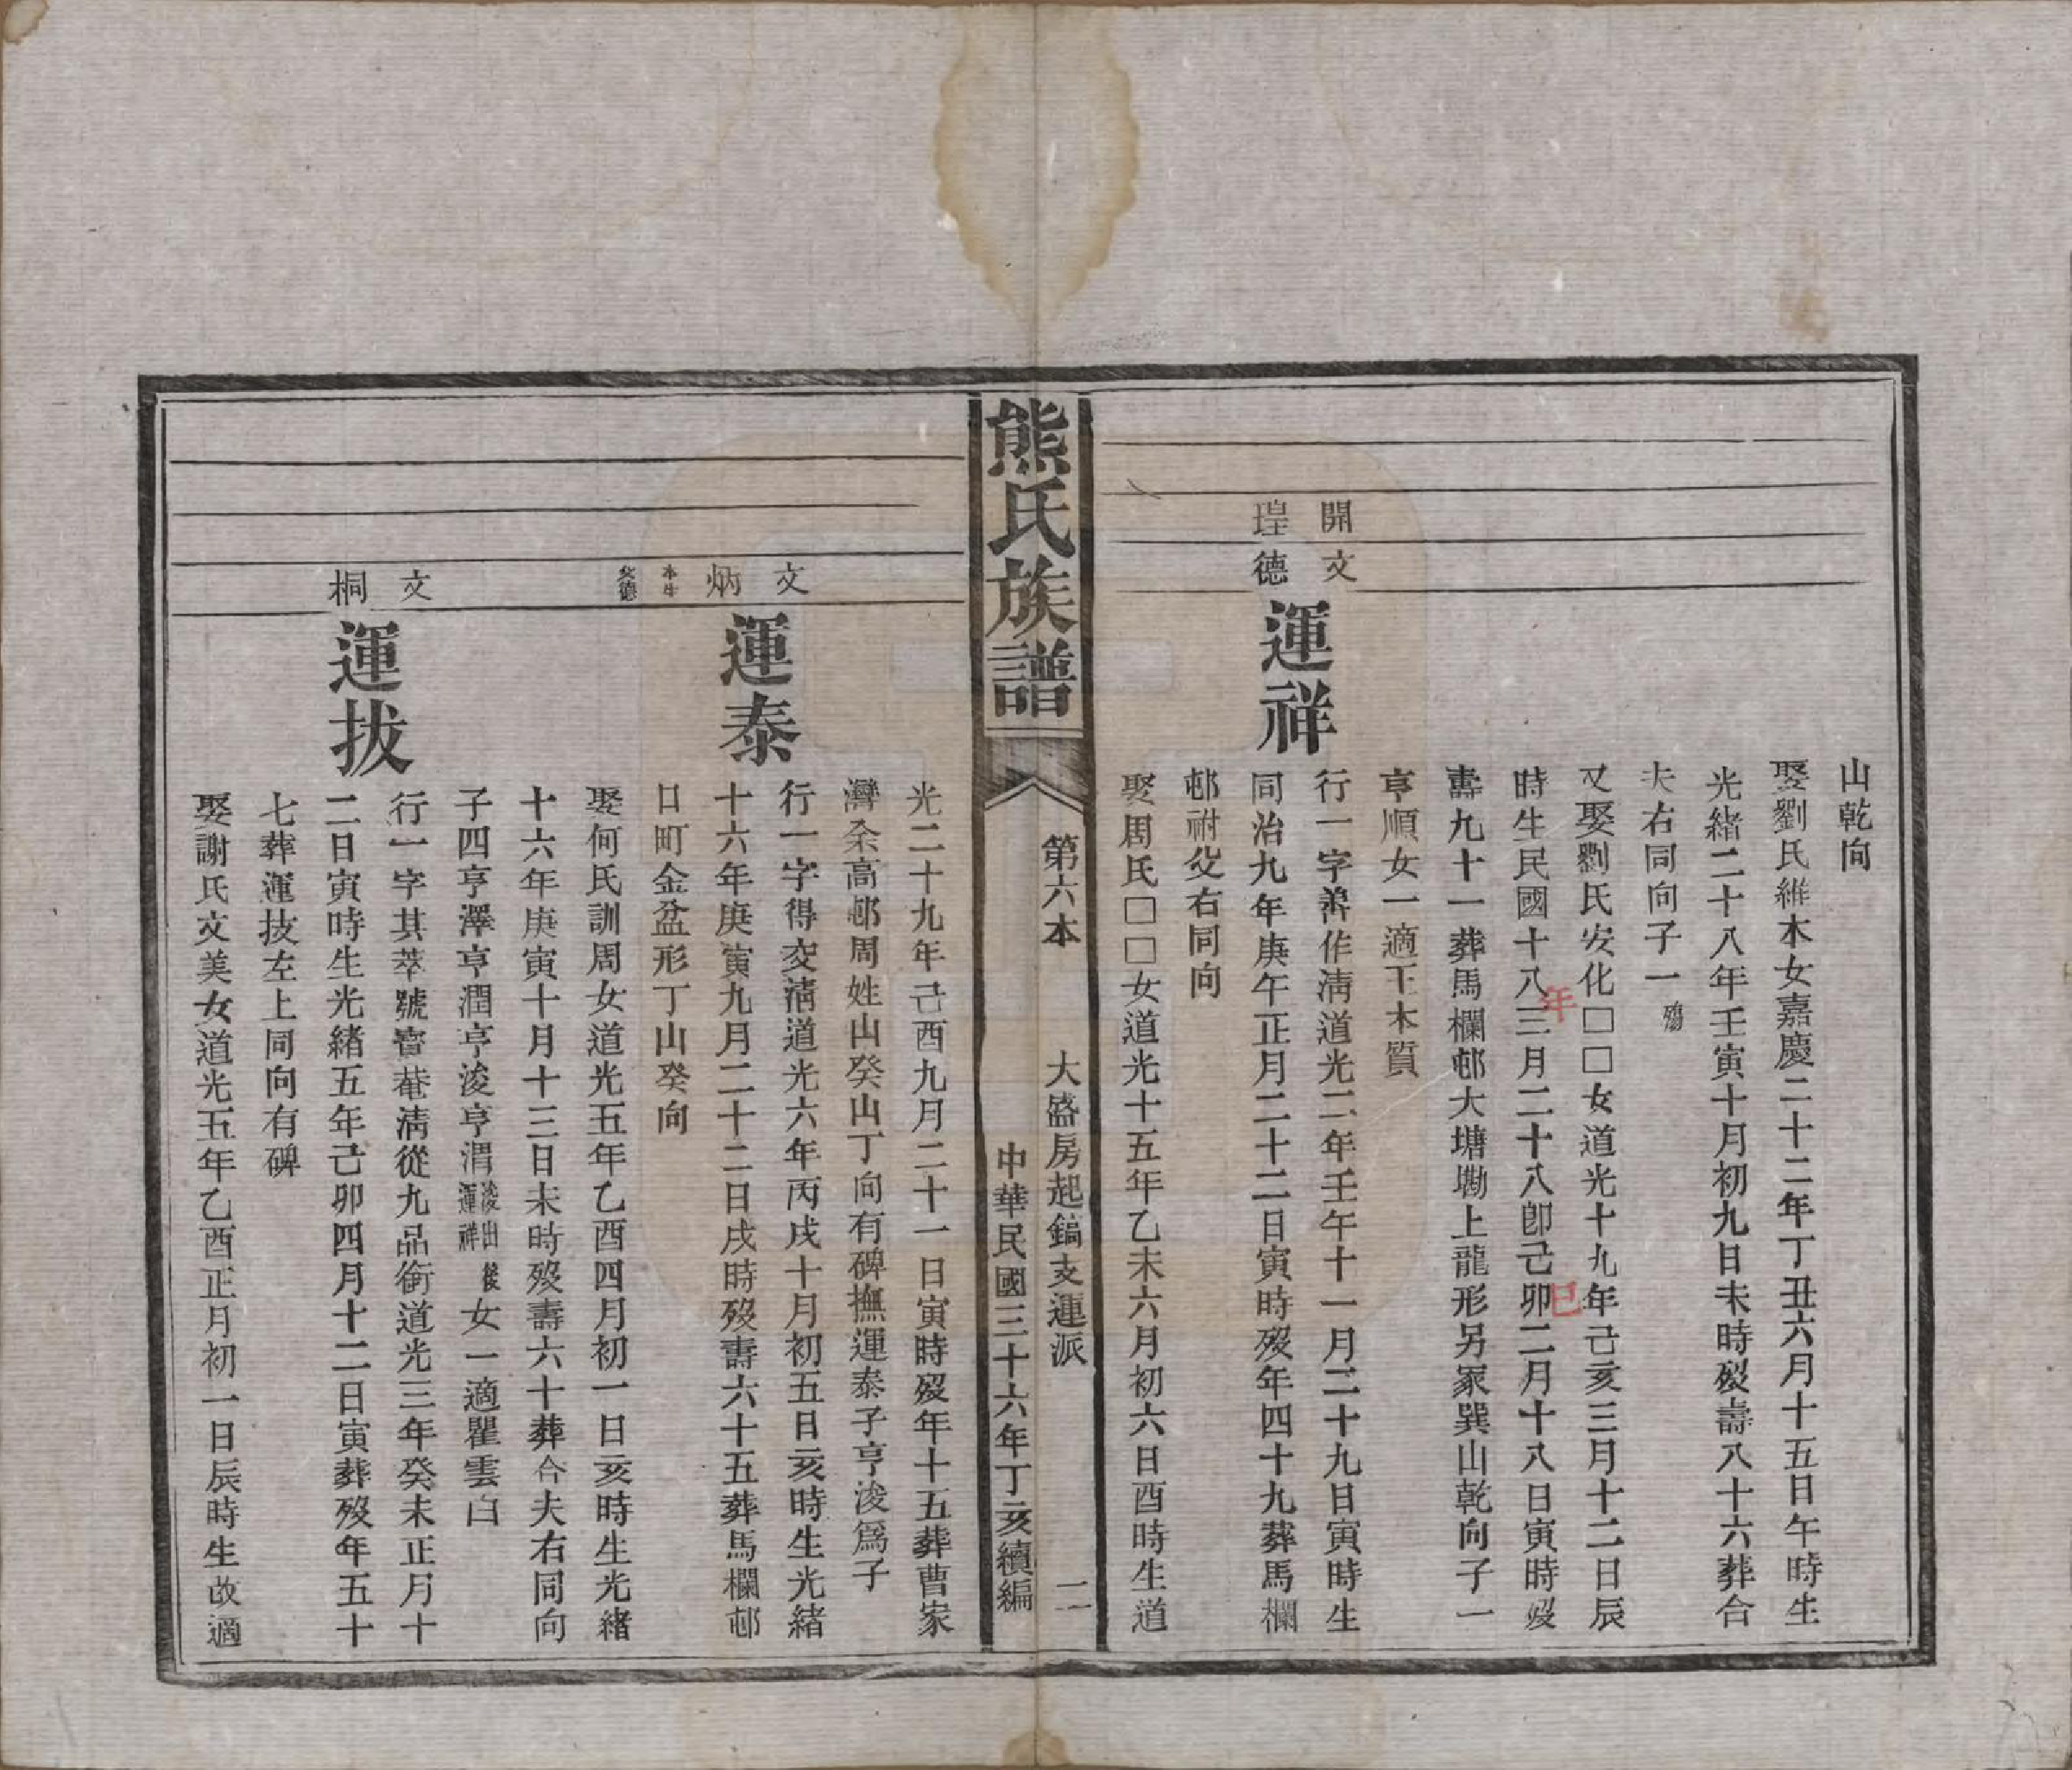 山乾向
娶劉氏維木女嘉慶二十二年丁丑六月十五日午時生
光緒二十八年壬寅十月初九日未時歿壽八十六葬合
夫右同向子一殤
又娶劉氏安化□□女道光十九年己亥三月十二日辰
時生民國十八年三月二十八卽己巳卯二月十八日寅時歿
壽九十一葬馬欄邨大塘墈上龍形另冢巽山乾向子一
亨順女一適王木質
開文
瑆德
運祥
行一字善作淸道光二年壬午十一月二十九日寅時生
同治九年庚午正月二十二日寅時歿年四十九葬馬欄
邨祔父右同向
娶周氏□□女道光十五年乙未六月初六日酉時生道
熊氏族譜
第六本
大盛房起鎬支運派
二
中華民國三十六年丁亥續編
光二十九年己酉九月二十一日寅時歿年十五葬曹家
灣茶高邨周姓山癸山丁向有碑撫運泰子亨浚爲子
文炳
本生
父德
運泰
行一字得交淸道光六年丙戌十月初五日亥時生光緒
十六年庚寅九月二十二日戌時歿壽六十五葬馬欄邨
日町金盆形丁山癸向
娶何氏訓周女道光五年乙酉四月初一日亥時生光緒
十六年庚寅十月十三日未時歿壽六十葬合夫右同向
子四亨澤亨潤亨浚亨渭浚出後運祥女一適瞿雲白
文桐
運拔
行一字其萃號實菴淸從九品銜道光三年癸未正月十
二日寅時生光緒五年己卯四月十二日寅葬歿年五十
七葬運技左上同向有碑
娶謝氏文美女道光五年乙酉正月初一日辰時生故適